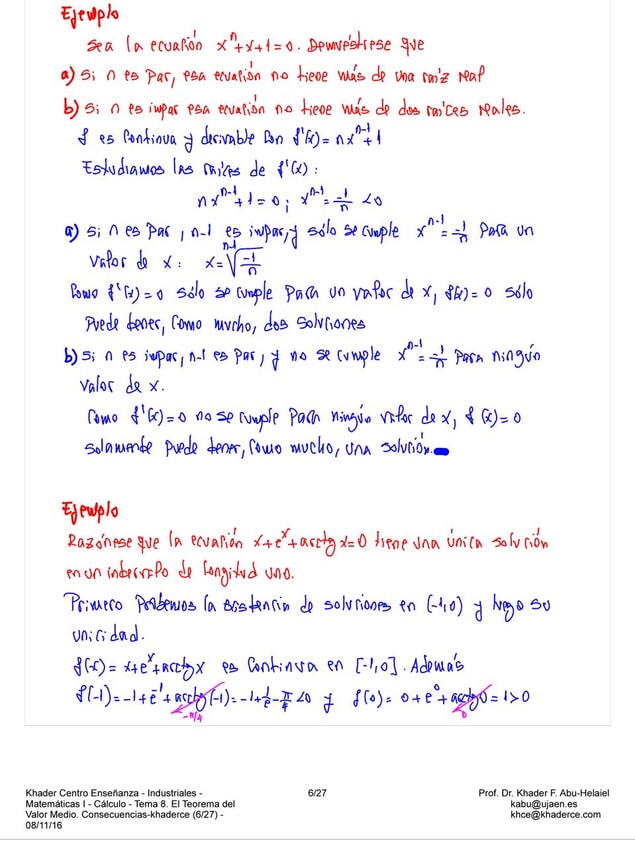 Ejemplo
Sea la ecuación xⁿ+x+1=0. Demuéstrese que
a) Si n es par, esa ecuación no tiene más de una raíz real
b) Si n es impar esa ecuación no tiene más de dos raíces reales.
f es continua y derivable con f'(x)=nxⁿ⁻¹+1
Estudiamos las raíces de f'(x):
nxⁿ⁻¹+1=0; xⁿ⁻¹=-1/n <0
a) Si n es par, n-1 es impar, y sólo se cumple xⁿ⁻¹=-1/n para un
valor de x: x=ⁿ⁻¹√(-1/n)
Como f'(x)=0 sólo se cumple para un valor de x, f(x)=0 sólo
puede tener, como mucho, dos soluciones
b) Si n es impar, n-1 es par, y no se cumple xⁿ⁻¹=-1/n para ningún
valor de x.
Como f'(x)=0 no se cumple para ningún valor de x, f(x)=0
solamente puede tener, como mucho, una solución.
Ejemplo
Razónese que la ecuación x+eˣ+arctg x=0 tiene una única solución
en un intervalo de longitud uno.
Primero probemos la existencia de soluciones en (-1,0) y luego su
unicidad.
f(x)=x+eˣ+arctg x es continua en [-1,0]. Además
f(-1)=-1+e⁻¹+arctg(-1)=-1+1/e-π/4<0 y f(0)=0+e⁰+arctg 0=1>0
-π/4 0
Khader Centro Enseñanza - Industriales - 6/27 Prof. Dr. Khader F. Abu-Helaiel
Matemáticas I - Cálculo - Tema 8. El Teorema del kabu@ujaen.es
Valor Medio. Consecuencias-khaderce (6/27) - khce@khaderce.com
08/11/16